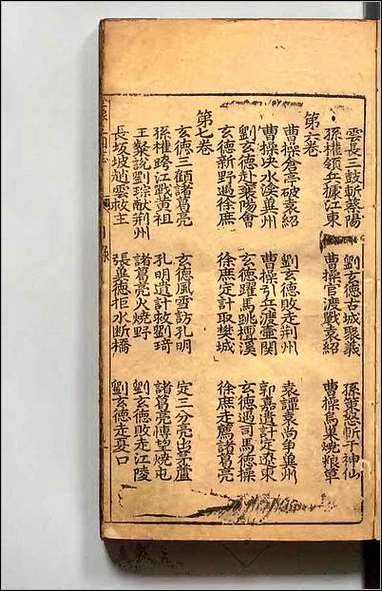 雲長三鼓斬蔡陽 劉玄德古城聚義 孫策怒斬于神仙
孫權領兵據江東 曹操官渡戰袁紹 曹操烏巢燒粮草
第六卷
曹操倉亭破袁紹 劉玄德敗走荆州 袁譚袁尚爭冀州
曹操决水渰冀州 曹操引兵渡壷關 郭嘉遺計定遼東
劉玄德赴襄陽會 玄德躍馬跳檀溪 玄德遇司馬德操
玄德新野遇徐庶 徐庶定計取樊城 徐庶走薦諸葛亮
第七卷
玄德三顧諸葛亮 玄德風雪訪孔明 定三分亮出茅廬
孫權跨江戰黄祖 孔明遺計救劉琦 諸葛亮博望燒屯
王粲說劉琮献荆州 諸葛亮火燒新野 劉玄德敗走江陵
長坂坡趙雲救主 張益德拒水断橋 劉玄德走夏口
目錄